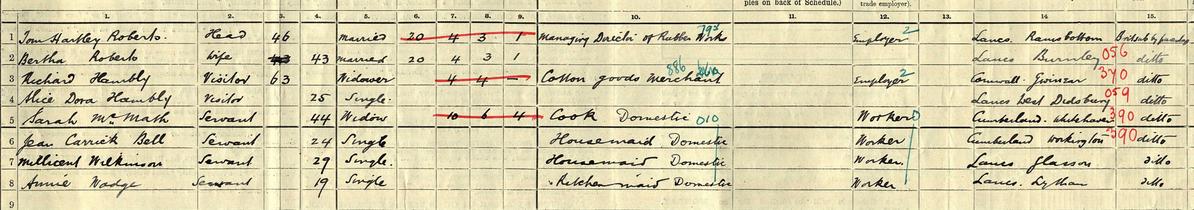 ples on back of Schedule.) trade employer.)
1. 2. 3. 4. 5. 6. 7. 8. 9. 10. 11. 12. 13. 14 15.
1 Tom Hartley Roberts. Head 46 Married 20 4 3 1 Managing Director of Rubber Works Employer 2 Lancs. Ramsbottom
2 Bertha Roberts Wife 43 43 Married 20 4 3 1 Lancs Burnley 056 ditto
3 Richard Hambly Visitor 63 Widower 4 4 – Cotton goods Merchant 886 Employer 2 Cornwall. Gwinear 370 ditto
4 Alice Dora Hambly Visitor 25 Single. Lancs West Didsbury 059 ditto
5 Sarah McMath Servant 44 Widow 10 6 4 Cook Domestic 010 Worker 0 Cumberland. Whitehaven 390 ditto
6 Jean Carrick Bell Servant 24 Single Housemaid Domestic Worker Cumberland Workington 390 ditto
7 Millicent Wilkinson Servant 29 Single. Housemaid Domestic Worker. Lancs Glasson ditto
8 Annie Wadge Servant 19 Single Kitchen maid Domestic Worker Lancs. Lytham ditto
9